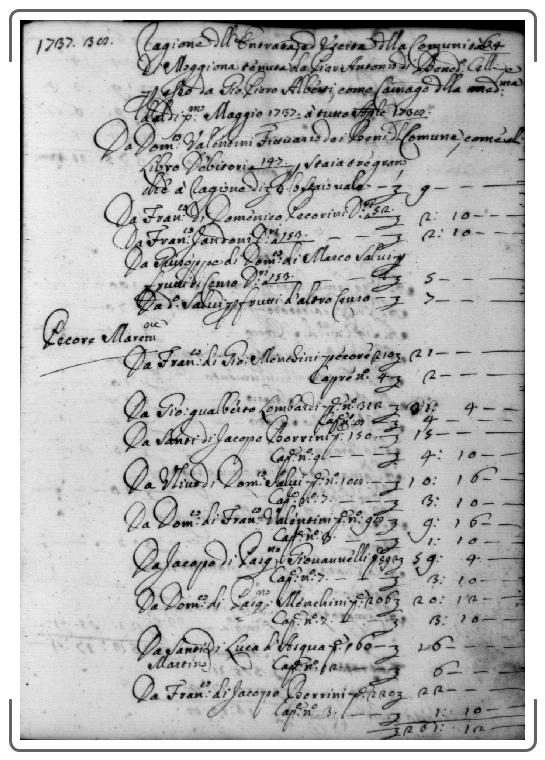 1737. 38.
Ragione dell'Entrata ed Uscita della Comunità 84
Di Moggiona tenuta da Pier Antonio di Bened.
da Gio: Piero Alberti, come Camarlgo della med.ma
dal dì p.mo Maggio 1737. a tutto Aple 1738.
Da Dom.co Valentini Fittuario dei Beni di Comune, come al
Libro Debitori a 147. staia tre gran
che a ragione di lo staio vale — 9 — —
Da Fran.co di Domenico Pecorini D.ri a 152. — 2: 10 —
Da Fran.co Fantoni D.ri a 153 — 2: 10 —
Da Giuseppe di Dom.co di Marco Salvi p
frutti di Censo D.ri a 153 — 5 — —
Da d.o Salvi p frutti d'altro Censo — 7 — —
Pecore Marem.ne
Da Fran.co di Gio: Menchini pecore 210 21 — —
Capre n.o 4 2 — —
Da Gio: Gualberto Lombardi p. n.o 312 — 31: 4 —
Cap. n.o 8 4 — —
Da Santi di Jacopo Borrini p. 150 — 15 — —
Cap. n.o 9 — 4: 10 —
Da Ulivo di Dom.co Salvi p. n.o 108 10: 16 —
Cap. n.o 7 — 3: 10 —
Da Dom.co di Fran.co Valentini p. n.o 98 9: 16 —
Cap. n.o 3 — 1: 10 —
Da Jacopo di Pasq. Giovannelli p. 592 59: 4 —
Cap. n.o 7 — 3: 10 —
Da Dom.co di Pasq. Menchini p. 206 20: 12 —
Cap. n.o 7 — 3: 10 —
Da Santi di Luca d'Acqua p. 160 16 — —
Martino Cap. n.o 12 — 6 — —
Da Fran.co di Jacopo Borrini p. 220 22 — —
Cap. n.o 3 — 1: 10 —
261: 12 —